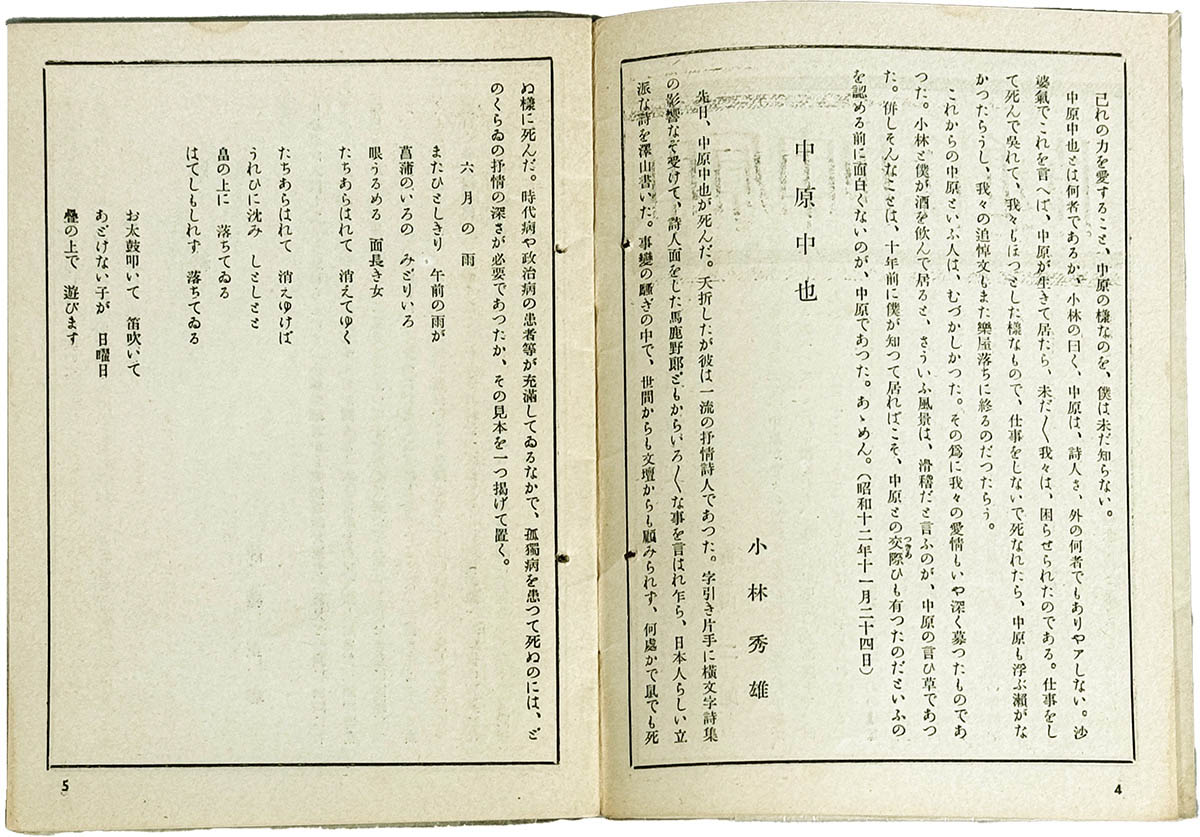 己れの力を愛すること、中原の樣なのを、僕は未だ知らない。
中原中也とは何者であるか。小林の曰く、中原は、詩人さ、外の何者でもありやアしない。沙
婆氣でこれを言へば、中原が生きて居たら、未だ〳〵我々は、困らせられたのである。仕事をし
て死んで呉れて、我々もほつとした樣なもので、仕事をしないで死なれたら、中原も浮ぶ瀬がな
かつたらうし、我々の追悼文もまた樂屋落ちに終るのだつたらう。
これからの中原といふ人は、むづかしかつた。その爲に我々の愛情もいや深く募つたものであ
つた。小林と僕が酒を飲んで居ると、さういふ風景は、滑稽だと言ふのが、中原の言ひ草であつ
た。併しそんなことは、十年前に僕が知つて居ればこそ、中原との交際ひも有つたのだといふの
つきあ
を認める前に面白くないのが、中原であつた。あゝめん。（昭和十二年十一月二十四日）
中原中也
小林秀雄
先日、中原中也が死んだ。夭折したが彼は一流の抒情詩人であつた。字引き片手に横文字詩集
の影響なぞ受けて、詩人面をした馬鹿野郎どもからいろ〳〵な事を言はれ乍ら、日本人らしい立
派な詩を澤山書いた。事變の騒ぎの中で、世間からも文壇からも顧みられず、何處かで鼠でも死
4
ぬ樣に死んだ。時代病や政治病の患者等が充滿してゐるなかで、孤獨病を患つて死ぬのには、ど
のくらゐの抒情の深さが必要であつたか、その見本を一つ掲げて置く。
六月の雨
またひとしきり　午前の雨が
菖蒲のいろの　みどりいろ
眼うるめる　面長き女
たちあらはれて　消えてゆく
たちあらはれて　消えゆけば
うれひに沈み　しとしとと
畠の上に　落ちてゐる
はてしもしれず　落ちてゐる
お太鼓叩いて　笛吹いて
あどけない子が　日曜日
疊の上で　遊びます
5